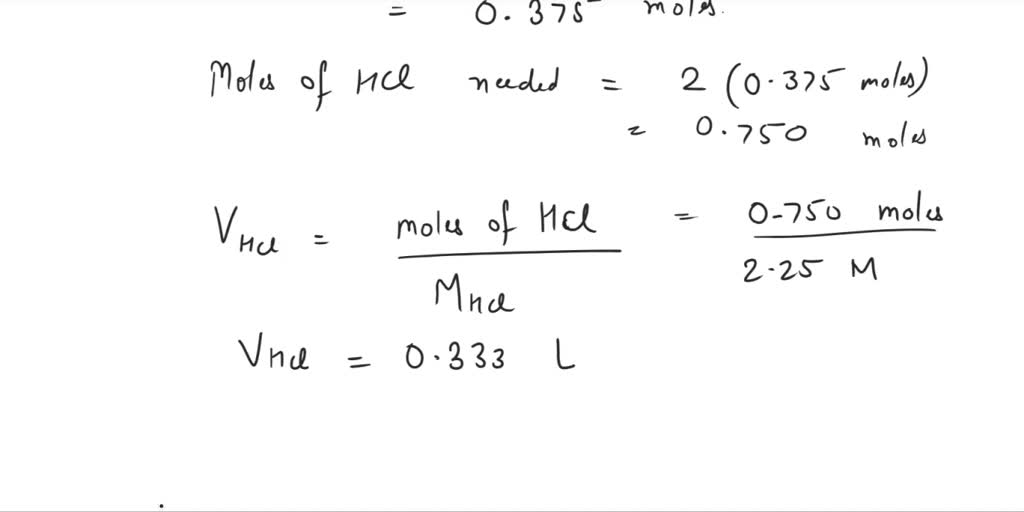 = 0.375 moles.
Moles of HCl needed = 2 (0.375 moles)
= 0.750 moles
VHCl = moles of HCl / MHCl = 0.750 moles / 2.25 M
VHCl = 0.333 L